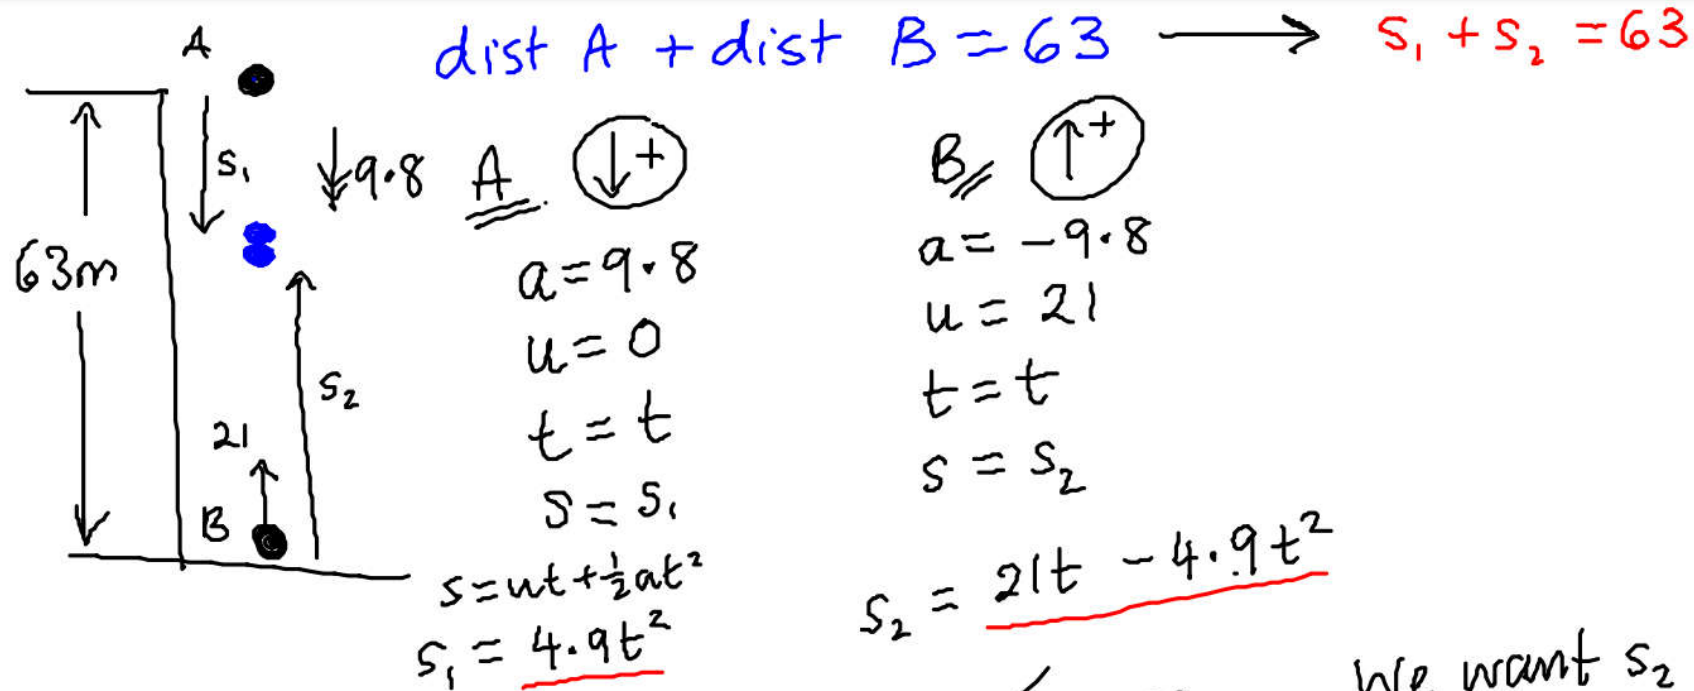 dist A + dist B = 63 → s₁ + s₂ = 63
A
63m
s₁
9.8
s₂
21
B
A ↓+
a = 9.8
u = 0
t = t
s = s₁
s = ut + ½at²
s₁ = 4.9t²
B ↑+
a = -9.8
u = 21
t = t
s = s₂
s₂ = 21t - 4.9t²
We want s₂